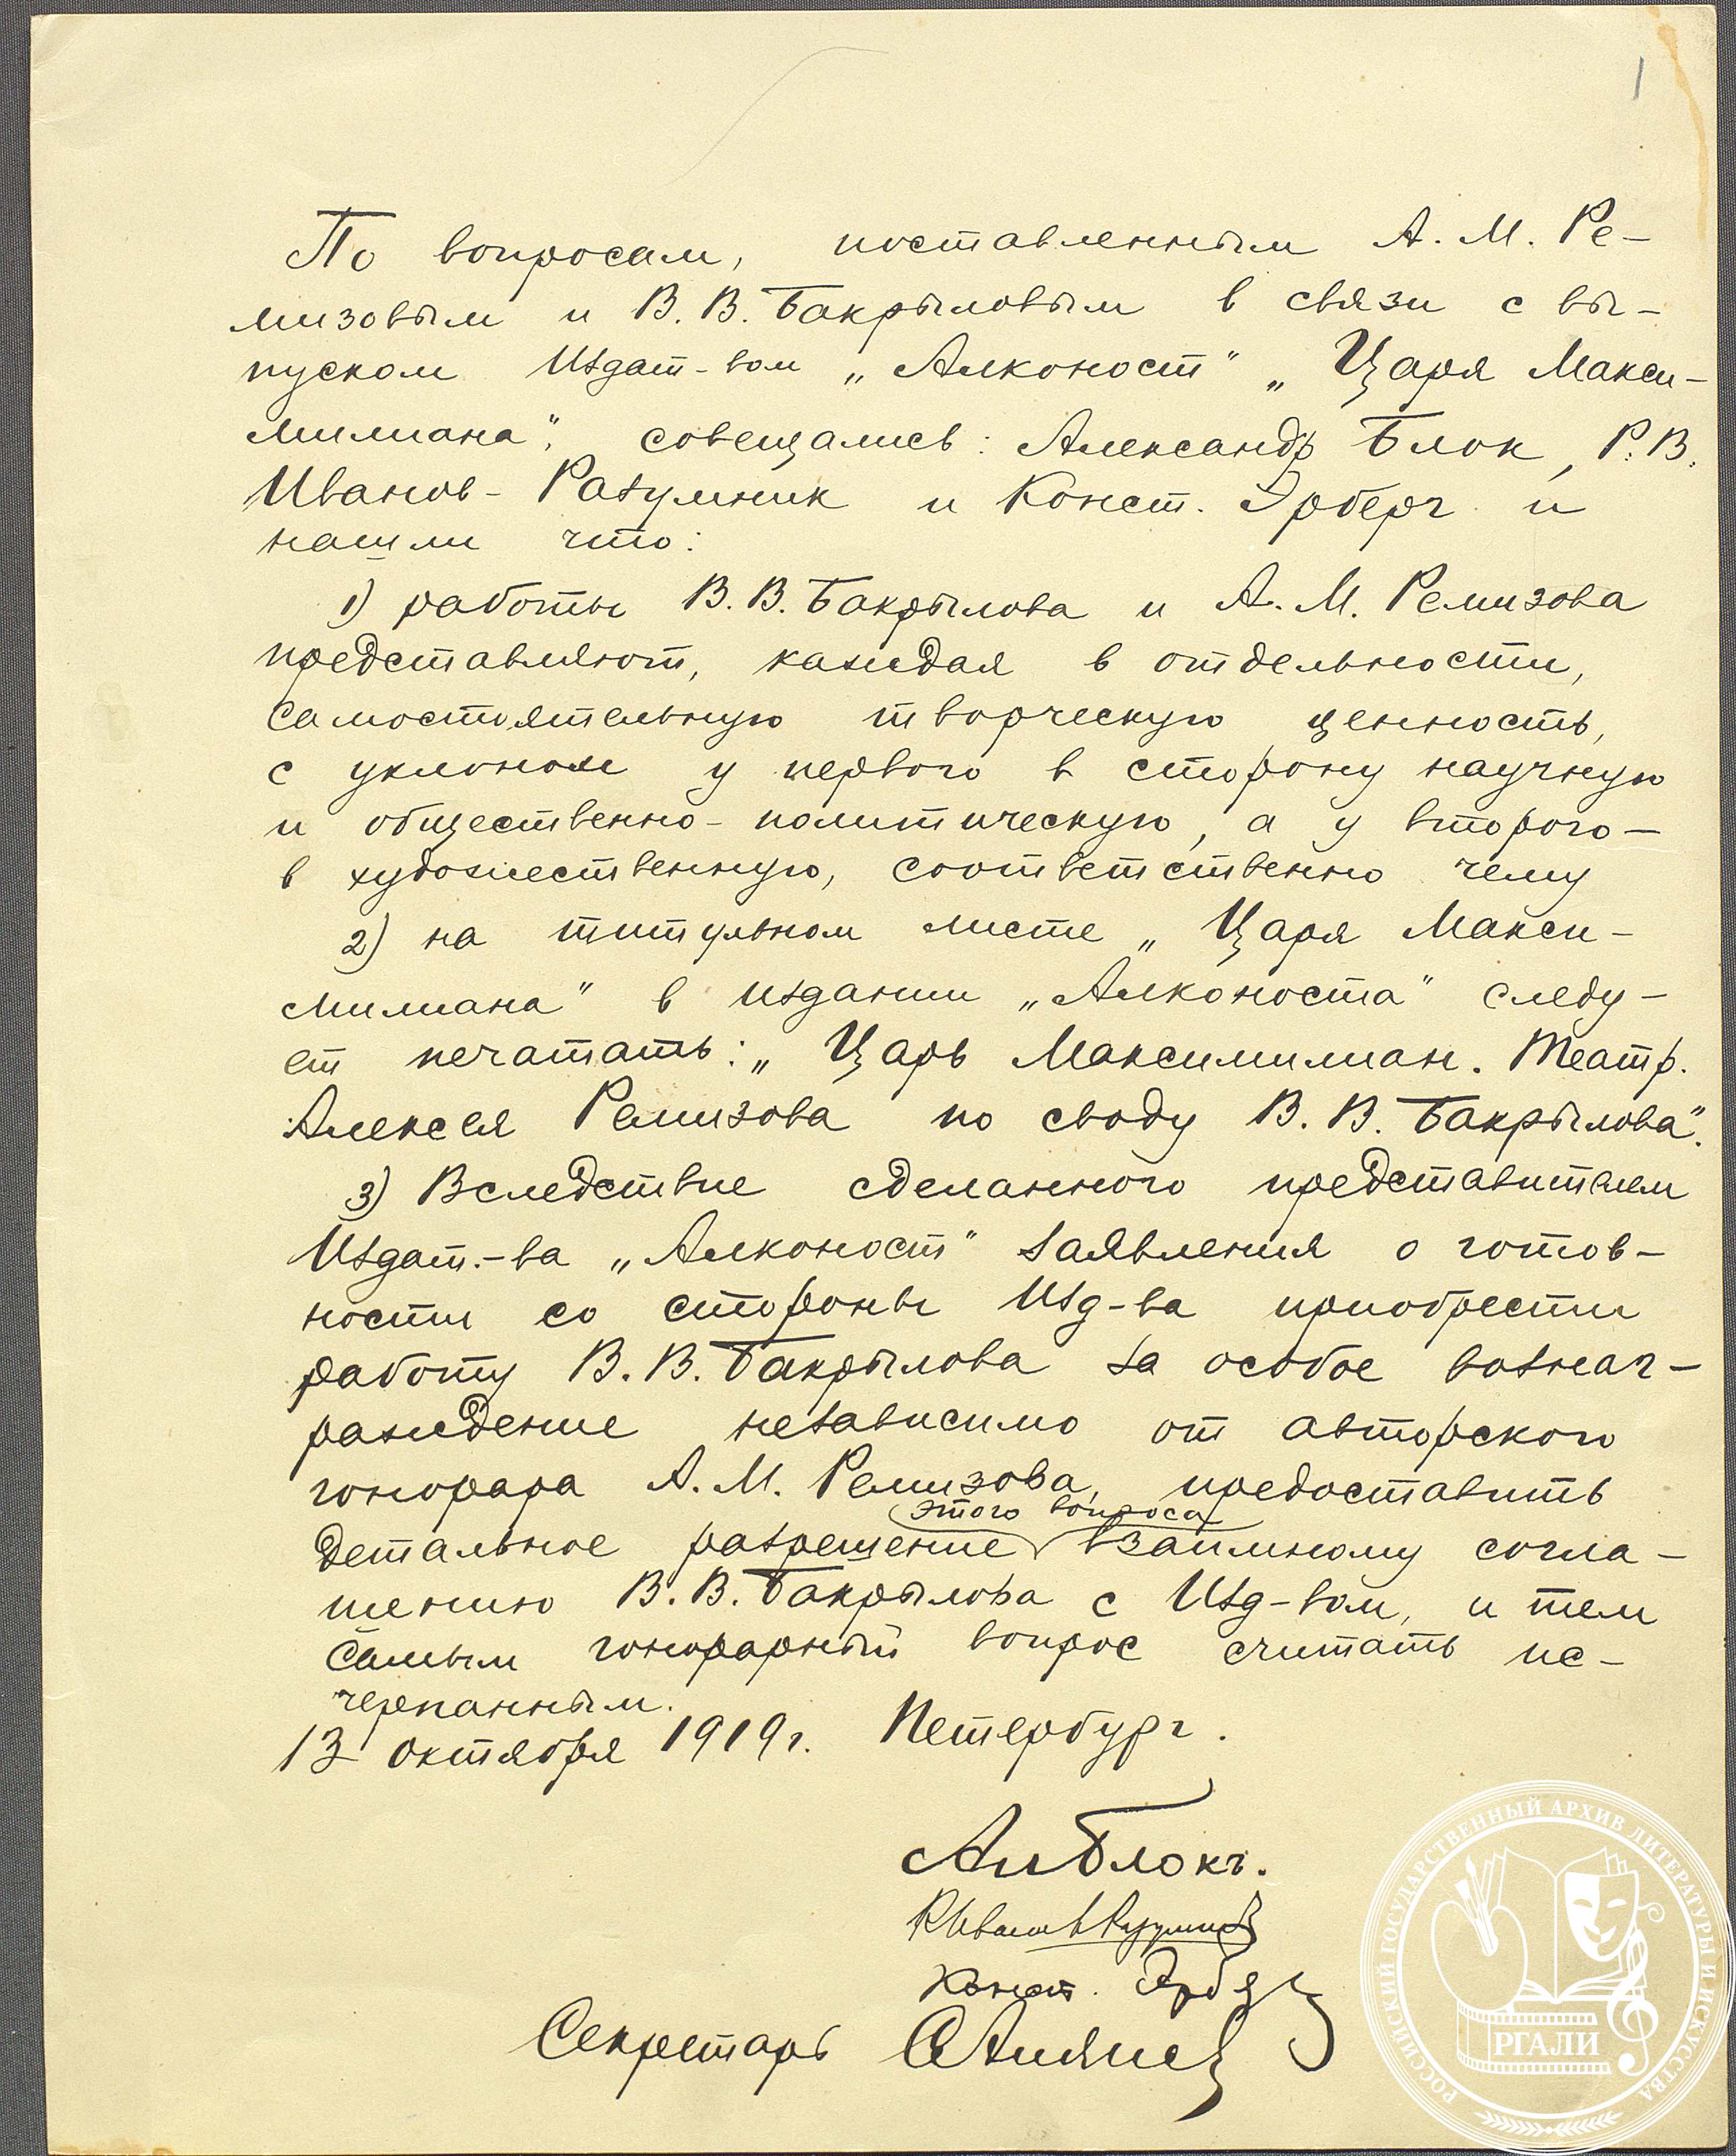 1
По вопросам, поставленным А. М. Ре-
мизовым и В. В. Бакрыловым в связи с вы-
пуском Издат-вом „Алконост" „Царя Макси-
милиана", совещались: Александр Блок, Р. В.
Иванов-Разумник и Конст. Эрберг и
нашли что:
1) работы В. В. Бакрылова и А. М. Ремизова
представляют, каждая в отдельности,
самостоятельную творческую ценность,
с уклоном у первого в сторону научную
и общественно-политическую, а у второго—
в художественную, соответственно чему
2) на титульном листе „Царя Макси-
милиана" в издании „Алконоста" следу-
ет печатать: „Царь Максимилиан. Театр.
Алексея Ремизова по своду В. В. Бакрылова".
3) Вследствие сделанного представителем
Издат.-ва „Алконост" заявления о готов-
ности со стороны Изд-ва приобрести
работу В. В. Бакрылова за особое вознаг-
раждение независимо от авторского
гонорара А. М. Ремизова, предоставить
этого вопроса
детальное разрешение взаимному согла-
шению В. В. Бакрылова с Изд-вом, и тем
самым гонорарный вопрос считать ис-
черпанным.
13 октября 1919 г. Петербург.
Ал Блокъ.
Р Иванов Разумник
Конст. Эрберг
Секретарь С Алянский
РОССИЙСКИЙ ГОСУДАРСТВЕННЫЙ АРХИВ ЛИТЕРАТУРЫ И ИСКУССТВА
РГАЛИ